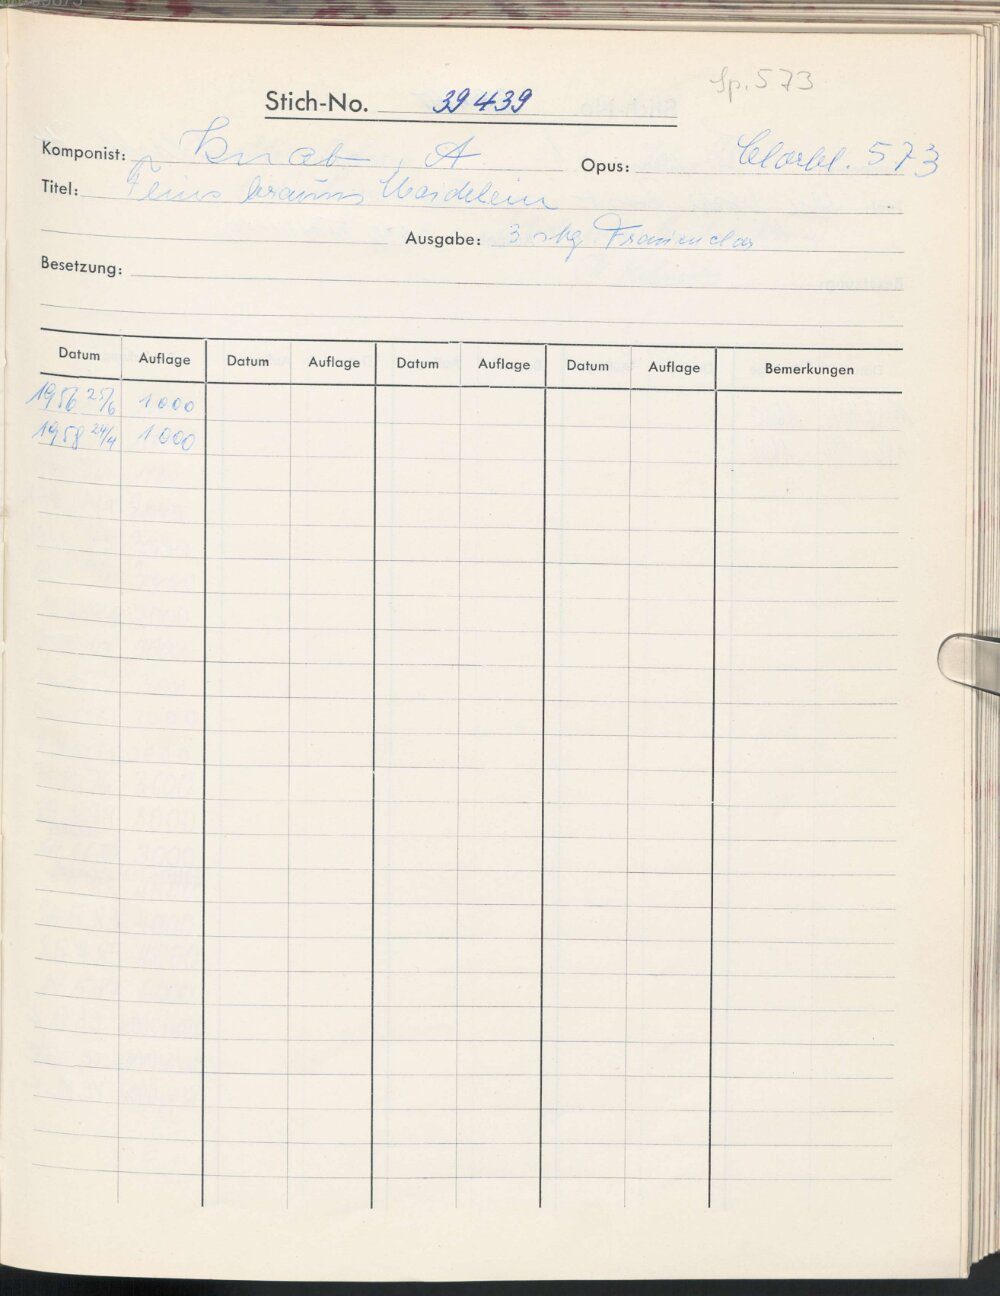 Sp. 573
Stich-No. 39439
Komponist: Knab, A
Opus: Chorbl. 573
Titel: Feins brauns Maidelein
Ausgabe: 3 stg Frauenchor
Besetzung:
Datum Auflage Datum Auflage Datum Auflage Datum Auflage Bemerkungen
1956 25/6 1000
1958 24/4 1000